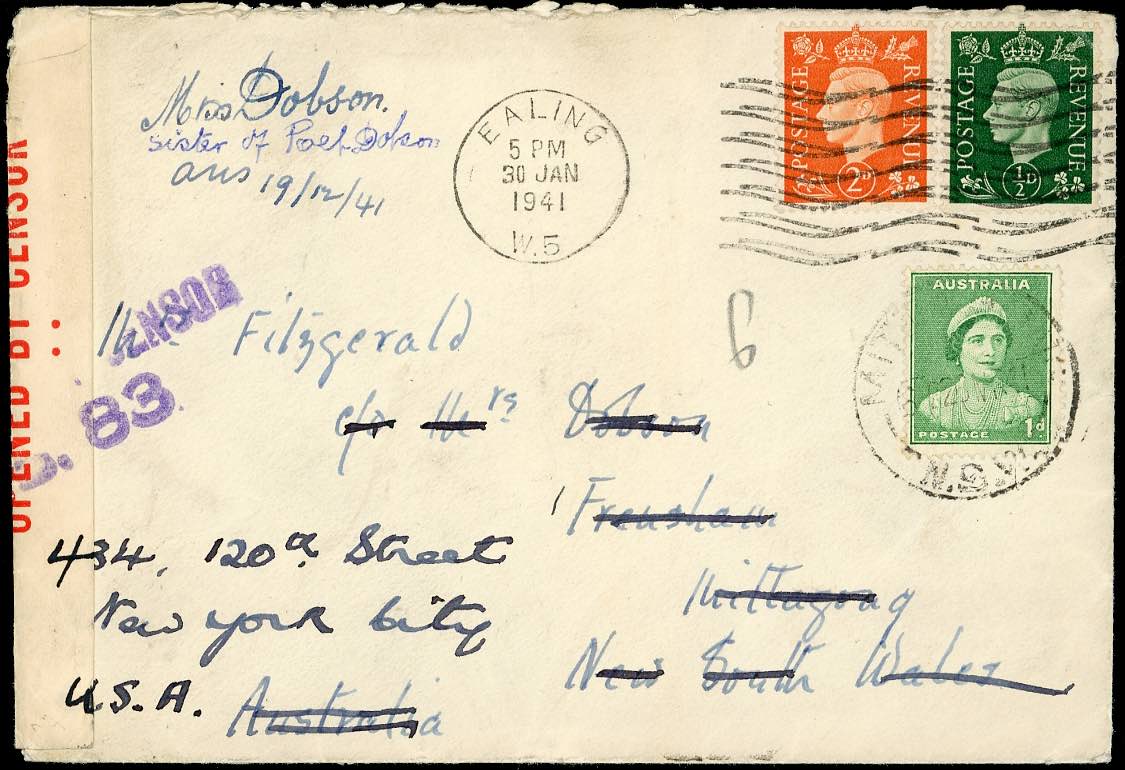 Miss Dobson.
Sister of Poet Dobson
ans 19/12/41
EALING
5 PM
30 JAN
1941
W.5
POSTAGE REVENUE
2D
POSTAGE REVENUE
½D
AUSTRALIA
POSTAGE 1d
N.S.W.
OPENED BY CENSOR
CENSOR
83.
6
Fitzgerald
c/o Mrs Dobson
Frensham
Mittagong
New South Wales
Australia
434, 120th Street
New York City
U.S.A.